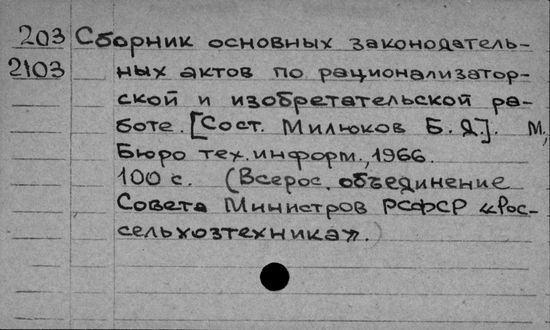 203 Сборник основных законодатель-
2103 ных актов по рационализатор-
ской и изобретательской ра-
боте. [Сост. Милюков Б. Я.]. М.,
Бюро тех. информ., 1966.
100 с. (Всерос. объединение
Совета Министров РСФСР «Рос-
сельхозтехника».)